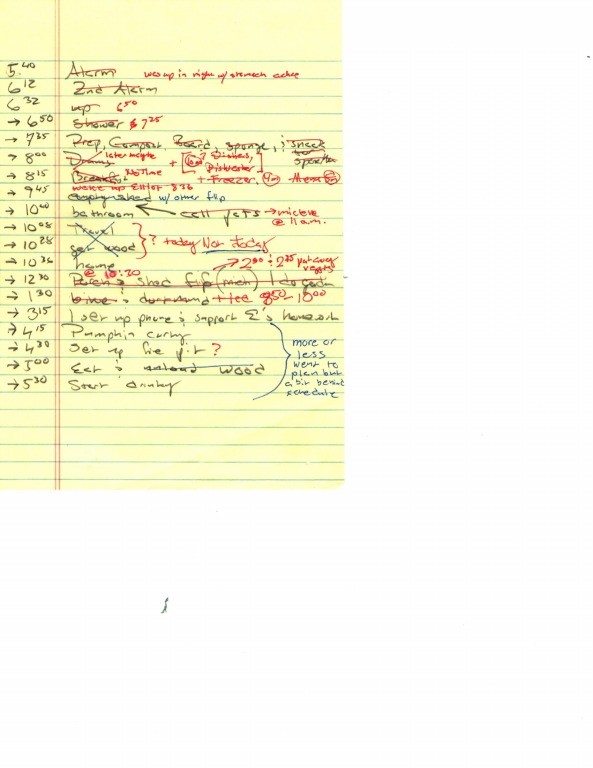 5:40 Alarm was up in night w/ stomach ache
6:12 2nd Alarm
6:32 up 6:50
→ 6:50 Shower & 7:25
→ 7:35 Prep, Compost, Board, sponge, ; snack to
→ 8:00 later maybe + [ ? Dishes, Dishwasher ]
→ 8:15 Breakfast No Time + Freezer,
→ 9:45 wake up Elliot 8:36
w/ other flip
→ 10:00 bathroom ← call → @ 11 a.m.
→ 10:08 Travel
→ 10:28 get wood } ? today Not Today
→ 10:36 home → 2:00 : 2:25 put away veggies
@ 10:30
→ 12:30 shed flip (meh) I do
→ 1:30 + 8:50 - 10:00
→ 3:15 I set up phone & support E's homework
→ 4:15 Pumpkin carving
→ 4:30 Set up fire pit?
→ 5:00 Eat & unload wood
→ 5:30 Start
more or
less
went to
plan but
a bit behind
schedule